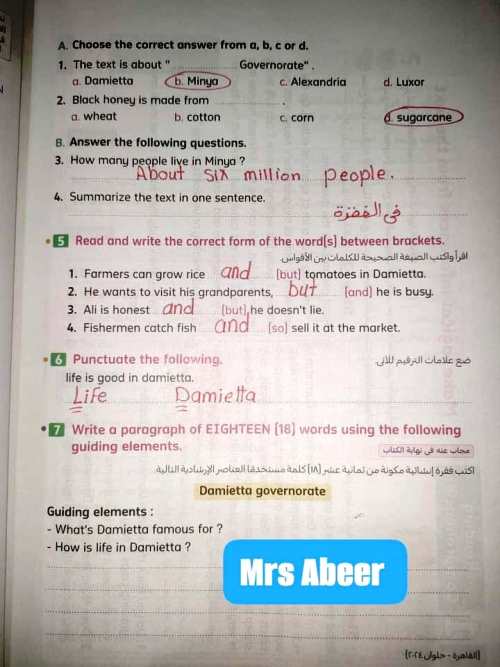 A. Choose the correct answer from a, b, c or d.
1. The text is about " Governorate" .
a. Damietta b. Minya c. Alexandria d. Luxor
2. Black honey is made from .
a. wheat b. cotton c. corn d. sugarcane
B. Answer the following questions.
3. How many people live in Minya ?
About six million people.
4. Summarize the text in one sentence.
في الفقرة
5 Read and write the correct form of the word(s) between brackets.
اقرأ واكتب الصيغة الصحيحة للكلمات بين الأقواس.
1. Farmers can grow rice and (but) tomatoes in Damietta.
2. He wants to visit his grandparents, but (and) he is busy.
3. Ali is honest and (but) he doesn't lie.
4. Fishermen catch fish and (so) sell it at the market.
6 Punctuate the following. ضع علامات الترقيم للآتي.
life is good in damietta.
Life Damietta
7 Write a paragraph of EIGHTEEN (18) words using the following
guiding elements. مجاب عنه في نهاية الكتاب
اكتب فقرة إنشائية مكونة من ثمانية عشر (١٨) كلمة مستخدمًا العناصر الإرشادية التالية.
Damietta governorate
Guiding elements :
- What's Damietta famous for ?
- How is life in Damietta ?
Mrs Abeer
(القاهرة - حلوان ٢٠٢٤)